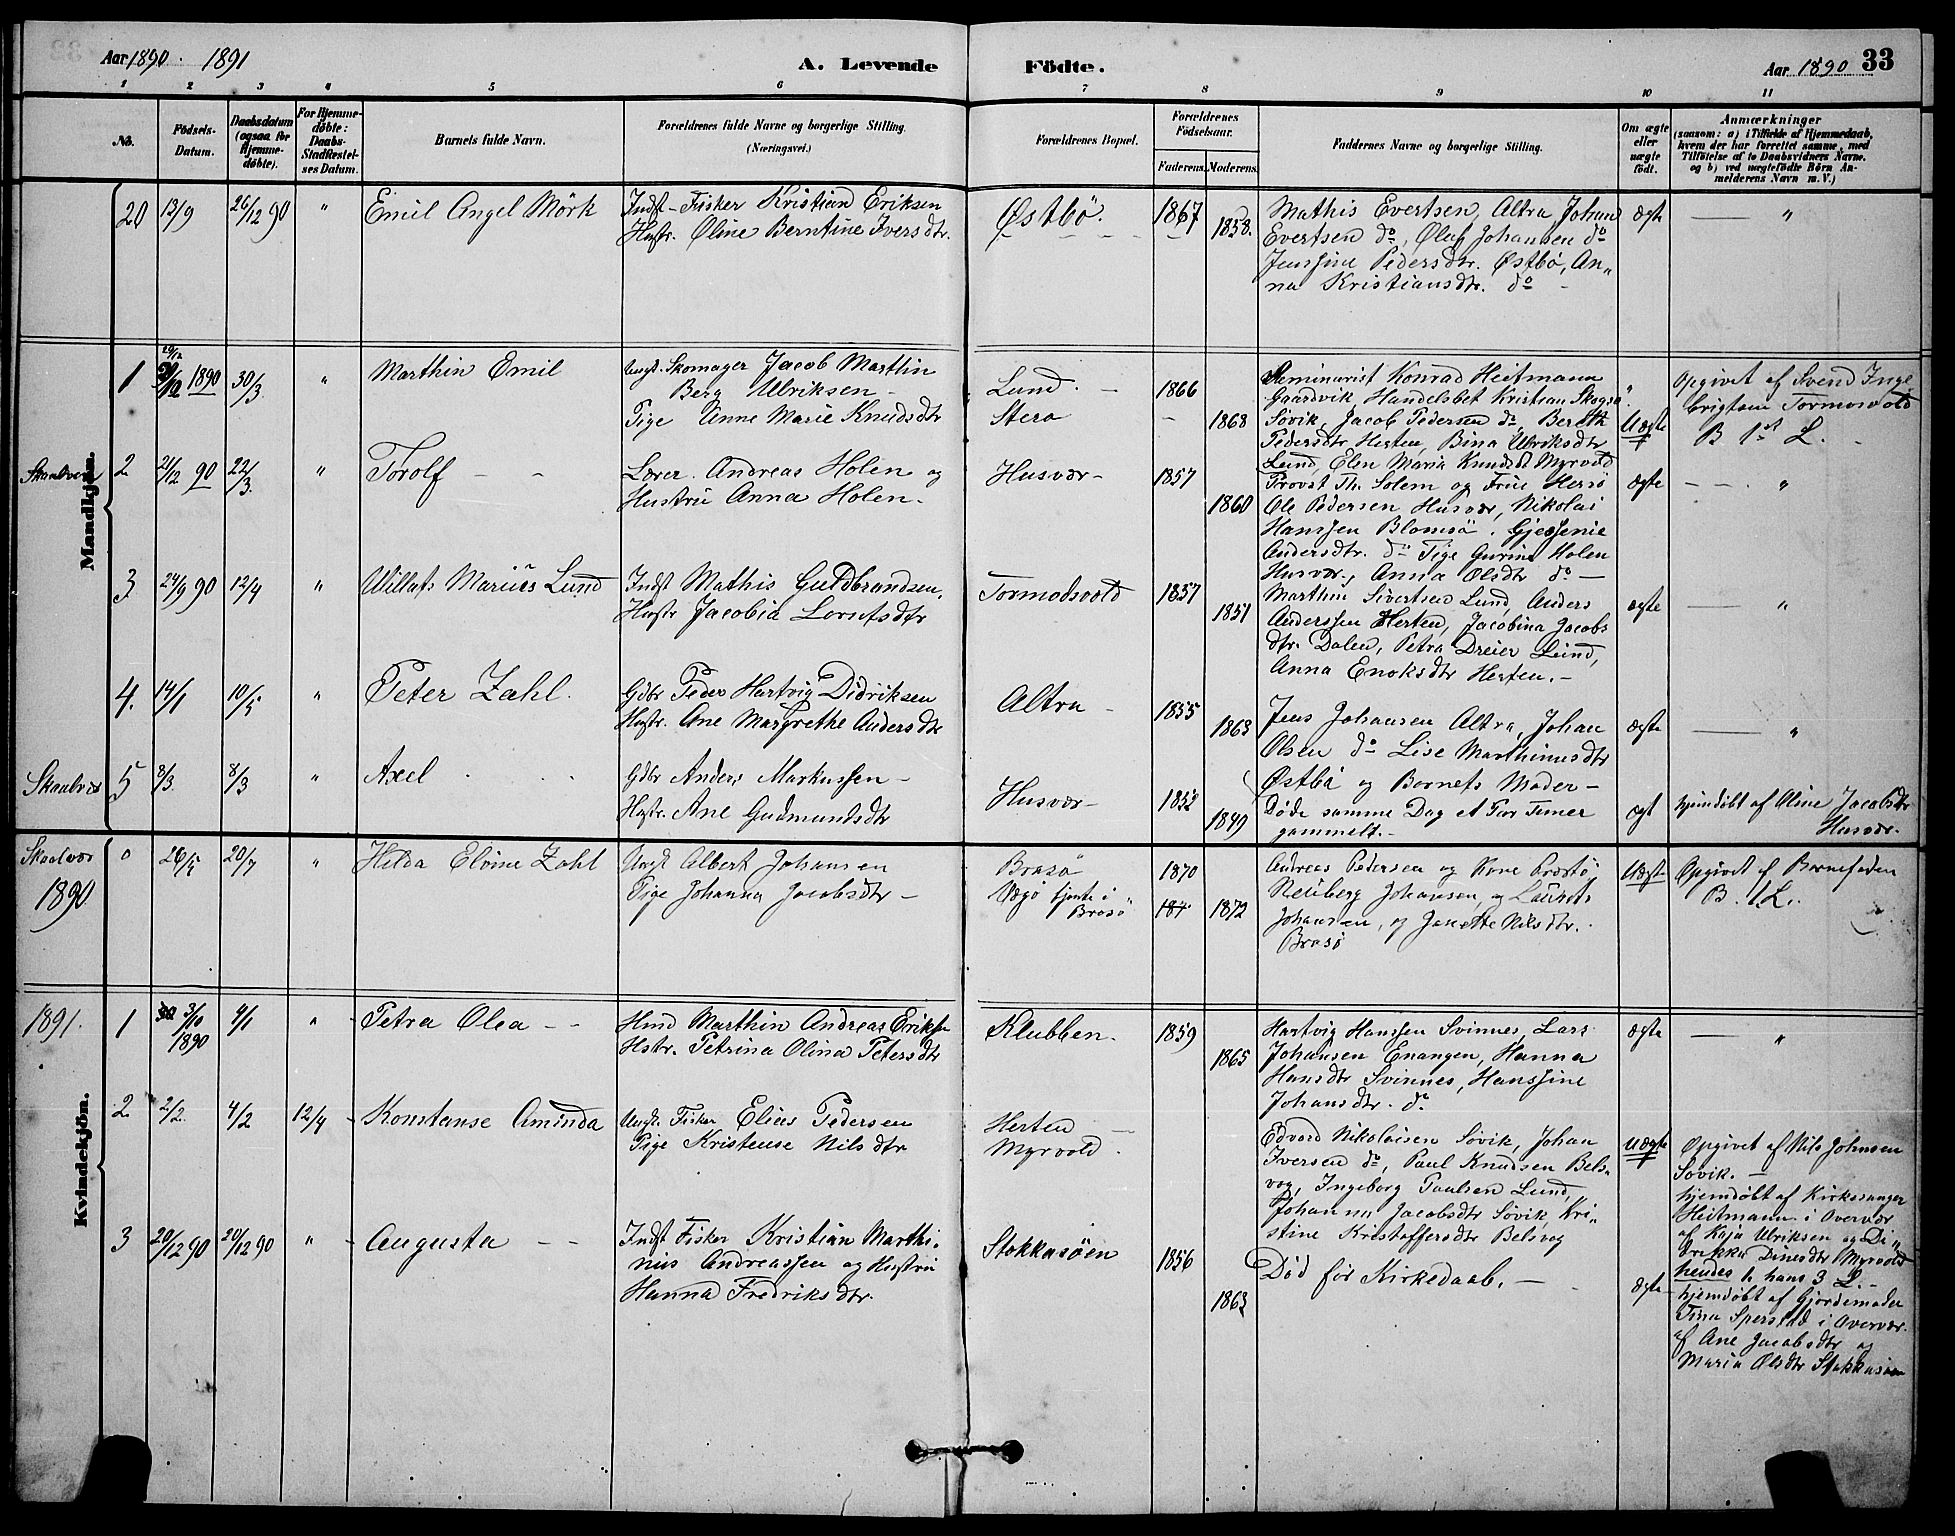 Aar 1890. 1891
A. Levende
Födte.
Aar 1890
33
1 2 3 4 5 6 7 8 9 10 11
No.
Födsels-
Datum.
Daabsdatum
(ogsaa for
Hjemme-
döbte).
For Hjemme-
döbte:
Daabs-
Stadfæstel-
ses Datum.
Barnets fulde Navn.
Forældrenes fulde Navne og borgerlige Stilling.
(Næringsvei.)
Forældrenes Bopæl.
Forældrenes
Födselsaar.
Faderens.
Moderens.
Faddernes Navne og borgerlige Stilling.
Om ægte
eller
uægte
födt.
Anmærkninger
(saasom: a) i Tilfælde af Hjemmedaab,
hvem der har forrettet samme, med
Tilföielse af to Daabsvidners Navne.
og b) ved uægtefödte Börn An-
melderens Navn m. V.)
20 13/9 26/12 90 " Emil Angel Mörk
Indst-Fisker Kristian Eriksen
Hustr. Oline Berntine Iversdtr.
Østbö. 1867 1858.
Mathis Evertsen, Altra, Johan
Evertsen do, Oluf Johansen do
Jenssine Pedersdtr. Østbö, An-
na Kristiansdtr. do -
ægte — "
Mandkjön.
1 29/12 1890 30/3 " Marthin Emil
Ungk. Skomager Jacob Marthin
Berg Ulriksen -
Pige Anne Marie Knudsdtr
Lund. - 1866
Stera - 1868
Seminarist Konrad Heitmann
Gaardvik Handelsbet Kristian Skogsø
Søvik, Jacob Pedersen do, Bereth
Pedersdtr Herten, Bina Ulriksdtr
Lund, Elen Maria Knudsdt Myrvold
" Uægte
Opgivet af Svend Inge
brigtsen Tormosvold
B 1st L. -
2 21/12 90 22/3. " Torolf - -
Lærer. Andreas Holen og
Hustru Anna Holen.
Husvær - 1857 1860
Provst Th. Solem og Frue Herrö
Ole Pedersen Husvær, Nikolai
Hanssen Blomsö, Gjessenie
Andersdtr. do Pige Gurine Holen
Husvær, Anna Olsdtr do -
ægte - - . "
3 24/9 90 12/4 " Willats Marius Lund
Indst Mathis Guldbrandsen,
Hustr Jacobia Lorntsdtr
Tormodsvold 1857 1851
Marthin Sivertsen Lund, Anders
Anderssen Herten, Jacobina Jacobs
dtr. Dalen, Petra Dreier Lund,
Anna Enoksdtr Herten. -
ægte — "
4. 14/1 10/5 " Peter Zahl.
Gdbr Peder Hartvig Didriksen
Hustr. Ane Margrethe Andersdtr
Altra - 1855 1863
Jens Johansen Altra, Johan
Olsen do Lise Marthinusdtr
Østbö og Barnets Moder -
ægte — "
5 8/3 8/3 " Axel
Gdbr Anders Markussen -
Hustr. Ane Gudmundsdtr
Husvær - 1852 1849
Døde samme Dag et Par Timer
gammelt. -
ægt
hjemdöbt af Oline Jacobsdtr
Husvær.
Skaalvær
1890
0 26/5 20/7 " Hilda Elvine Zahl
Ungk Albert Johansen
Pige Johanna Jacobsdtr -
Brasø 1870
Vegö tjente i
Brasö 1872
Andreas Pedersen og Kone Brasö,
Neüberg Johansen, og Laurits
Johansen, og Janette Nilsdtr.
Brasö
Uægt-
Opgivet af Barnefaden
B. 1.L.
Kvindekjön.
1891. 1 3/10 1890 4/1 " Petra Olea - -
Hmd Marthin Andreas Eriksn
Hstr. Petrina Olina Petersdtr
Klubben. 1859 1865
Hartvig Hanssen Svinnes, Lars
Johansen Enangen, Hanna
Hansdtr Svinnes, Hanssine
Johansdtr. do
ægte — "
2 2/2. 4/2 12/4 Konstanse Aminda
Ungk. Fisker Elias Pedersen
Pige Kristense Nilsdtr
Herten —
Myrvold.
Edvard Nikolaisen Søvik, Johan
Iversen do, Paul Knudsen Bels-
vog, Ingeborg Paulsen Lund,
Johanna Jacobsdtr Søvik, Kri-
stine Kristoffersdtr Belsvog
Uægte
Opgivet af Nils Johnsen
Søvik. -
hjemdöbt af Kirkesanger
Heitmann i Overvær
af Kaja Ulriksen og Di-
drikke Dinesdtr Myrvold
hendes 1. hans 3 L. -
3 20/12 90 20/12 90 " - Augusta - -
Indst Fisker Kristian Marthi-
nus Andreassen og Hustru
Hanna Fredriksdtr.
Stokkasöen 1856 1863
Död før Kirkedaab. —
ægte
hjemdöbt af Gjordemoder
Tina Sperstad i Overvær.
af Ane Jacobsdtr og
Maria Olsdtr Stokkasøen